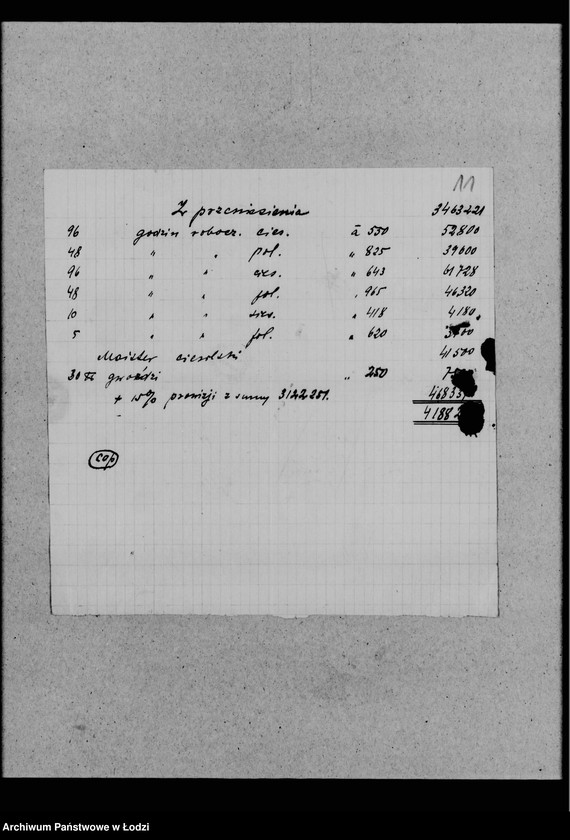 11
Z przeniesienia 3463421
96 godzin robocz. cies. à 550 52800
48 " " pol. " 825 39600
96 " " cies. " 643 61728
48 " " pol. " 965 46320
10 " " cies. " 418 4180
5 " " pol. " 620
Majster ciesielski 41500
30 gwoździ " 250
+ 15% prowizji z sumy 3122251.
Archiwum Państwowe w Łodzi